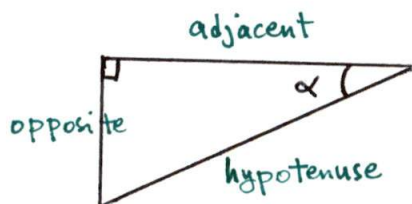 adjacent
α
opposite
hypotenuse